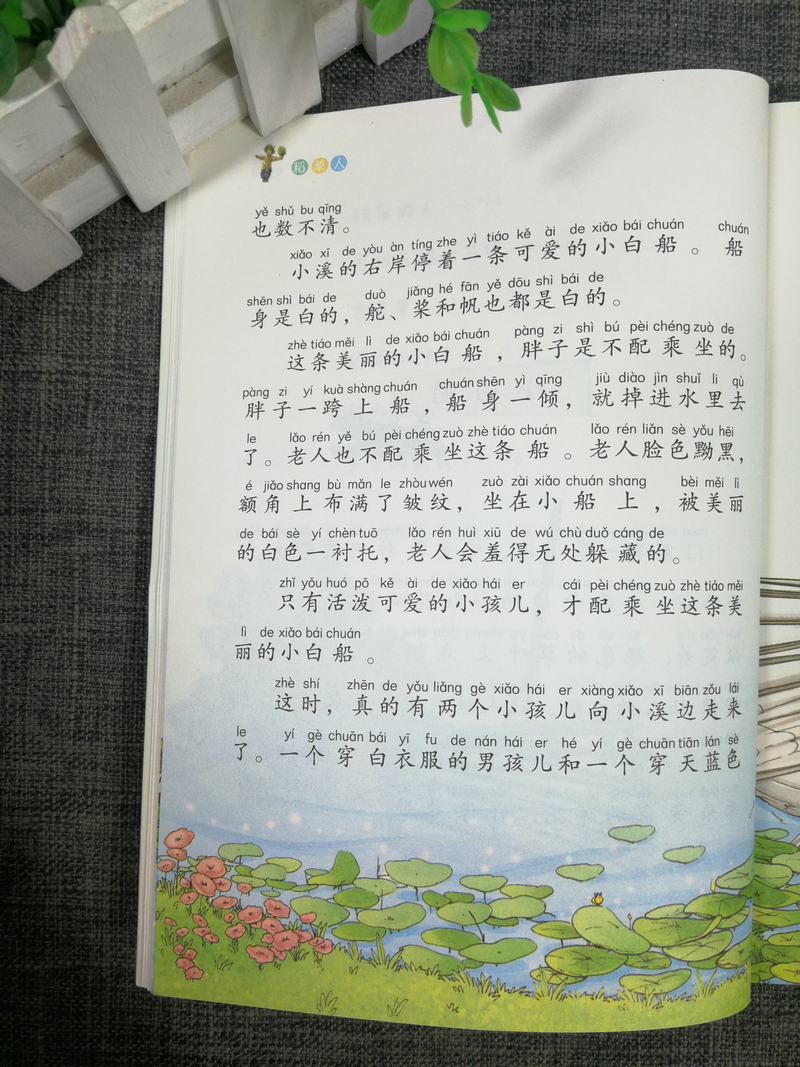 稻草人
yě shǔ bu qīng
也数不清。
xiǎo xī de yòu àn tíng zhe yì tiáo kě ài de xiǎo bái chuán chuán
小溪的右岸停着一条可爱的小白船。船
shēn shì bái de duò jiǎng hé fān yě dōu shì bái de
身是白的，舵、桨和帆也都是白的。
zhè tiáo měi lì de xiǎo bái chuán pàng zi shì bú pèi chéng zuò de
这条美丽的小白船，胖子是不配乘坐的。
pàng zi yí kuà shàng chuán chuán shēn yì qīng jiù diào jìn shuǐ li qù
胖子一跨上船，船身一倾，就掉进水里去
le lǎo rén yě bú pèi chéng zuò zhè tiáo chuán lǎo rén liǎn sè yǒu hēi
了。老人也不配乘坐这条船。老人脸色黝黑，
é jiǎo shang bù mǎn le zhòu wén zuò zài xiǎo chuán shang bèi měi lì
额角上布满了皱纹，坐在小船上，被美丽
de bái sè yí chèn tuō lǎo rén huì xiū de wú chù duǒ cáng de
的白色一衬托，老人会羞得无处躲藏的。
zhǐ yǒu huó pō kě ài de xiǎo hái er cái pèi chéng zuò zhè tiáo měi
只有活泼可爱的小孩儿，才配乘坐这条美
lì de xiǎo bái chuán
丽的小白船。
zhè shí zhēn de yǒu liǎng gè xiǎo hái er xiàng xiǎo xī biān zǒu lái
这时，真的有两个小孩儿向小溪边走来
le yí gè chuān bái yī fu de nán hái er hé yí gè chuān tiān lán sè
了。一个穿白衣服的男孩儿和一个穿天蓝色